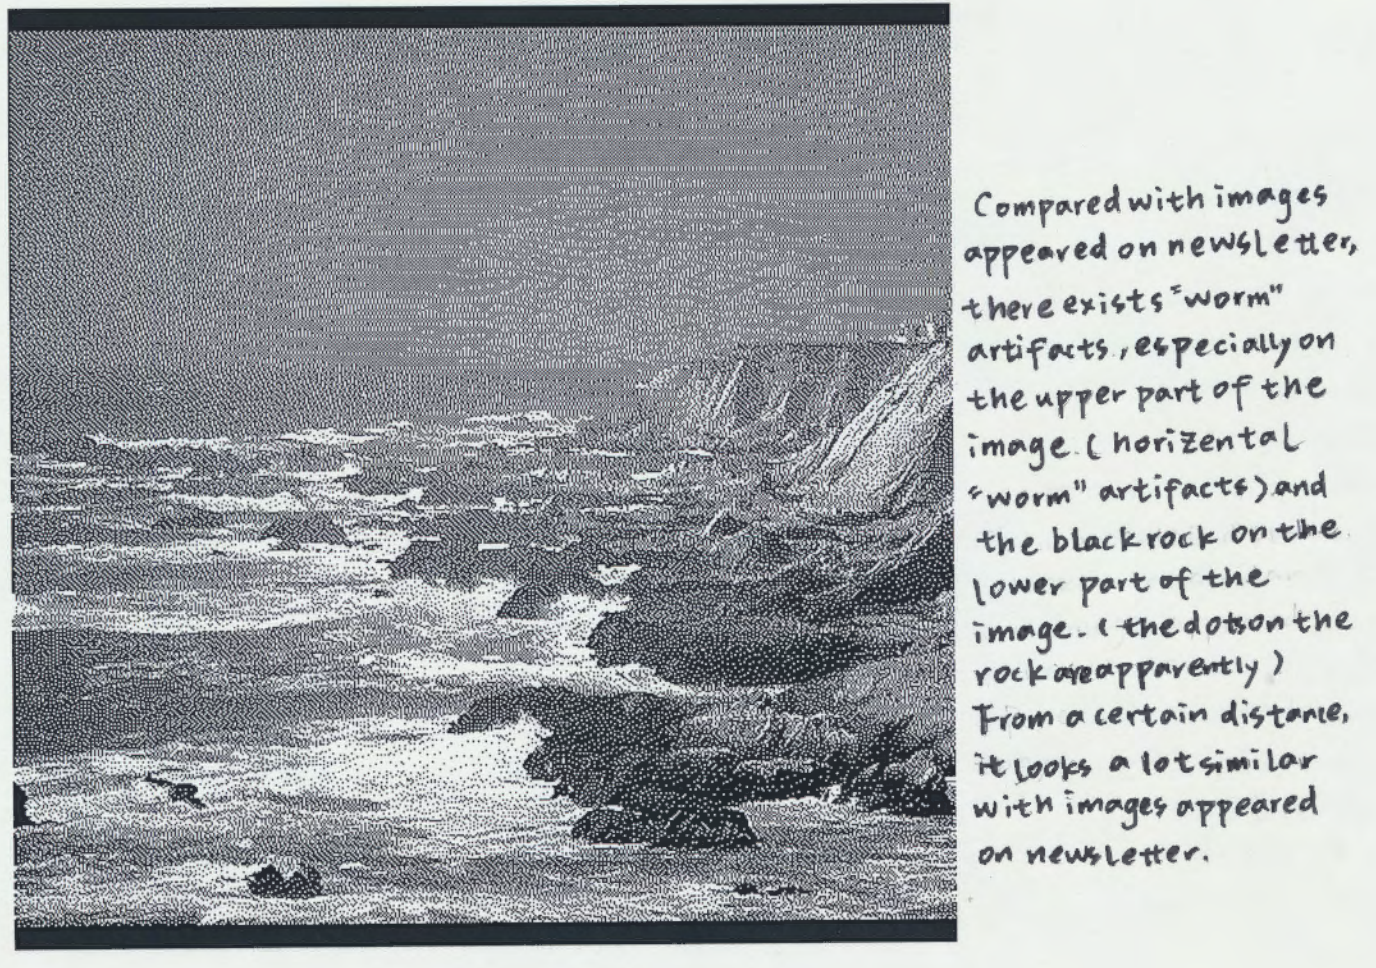 Compared with images
appeared on newsletter,
there exists "worm"
artifacts, especially on
the upper part of the
image. ( horizental
"worm" artifacts) and
the black rock on the
lower part of the
image. ( the dots on the
rock are apparently )
From a certain distance,
it looks a lot similar
with images appeared
on newsletter.